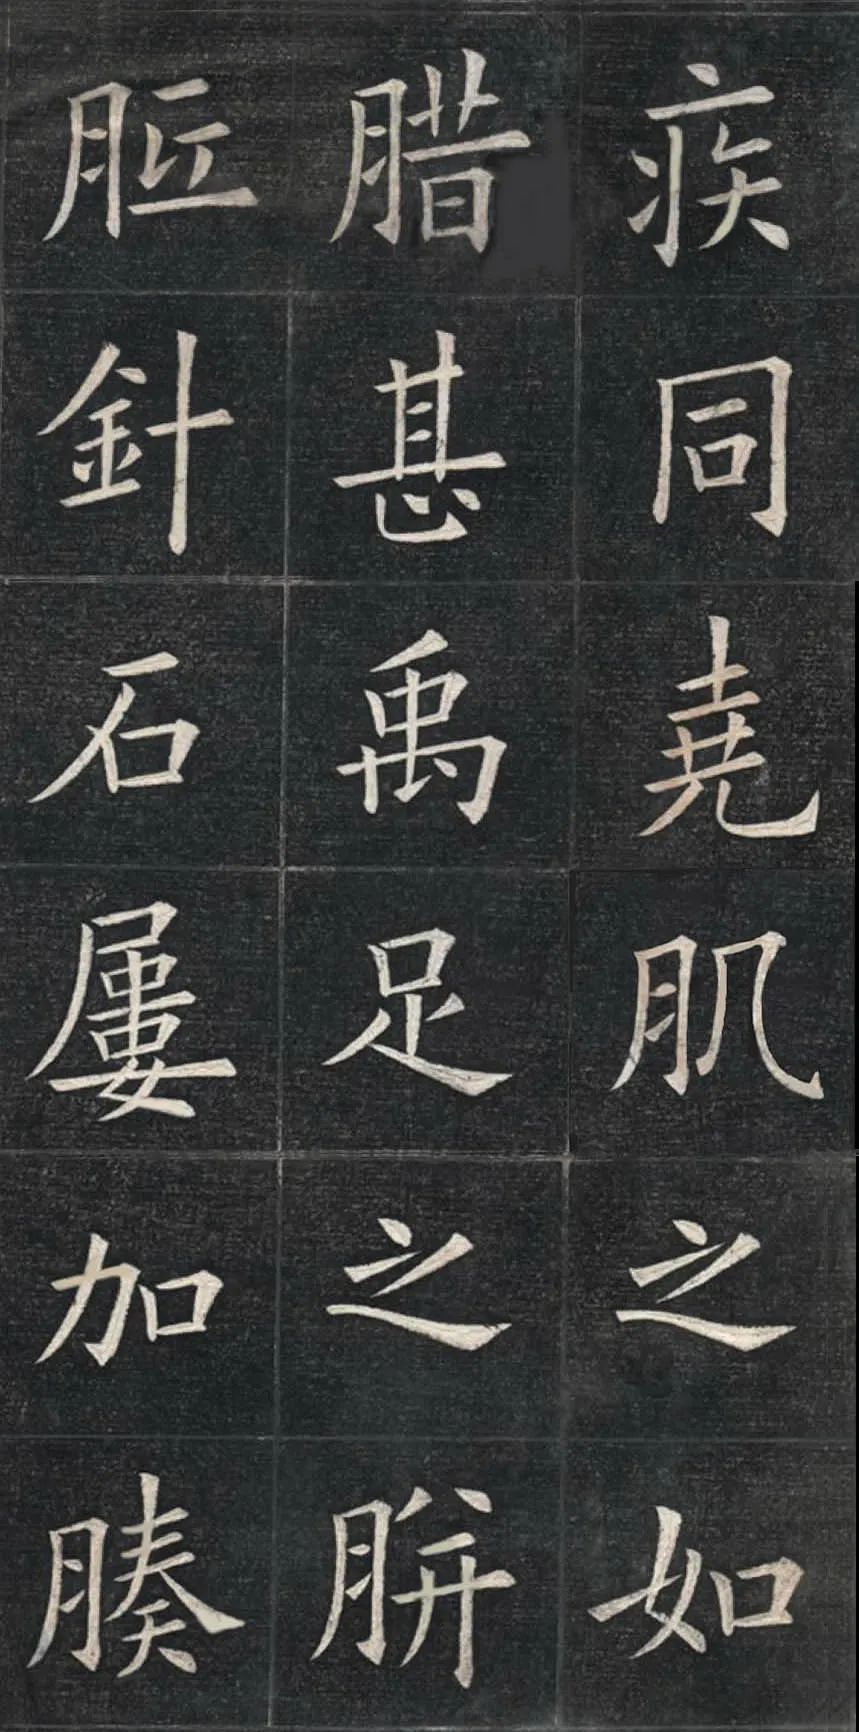 疾同堯肌之如
腊甚禹足之胼
胝針石屢加腠